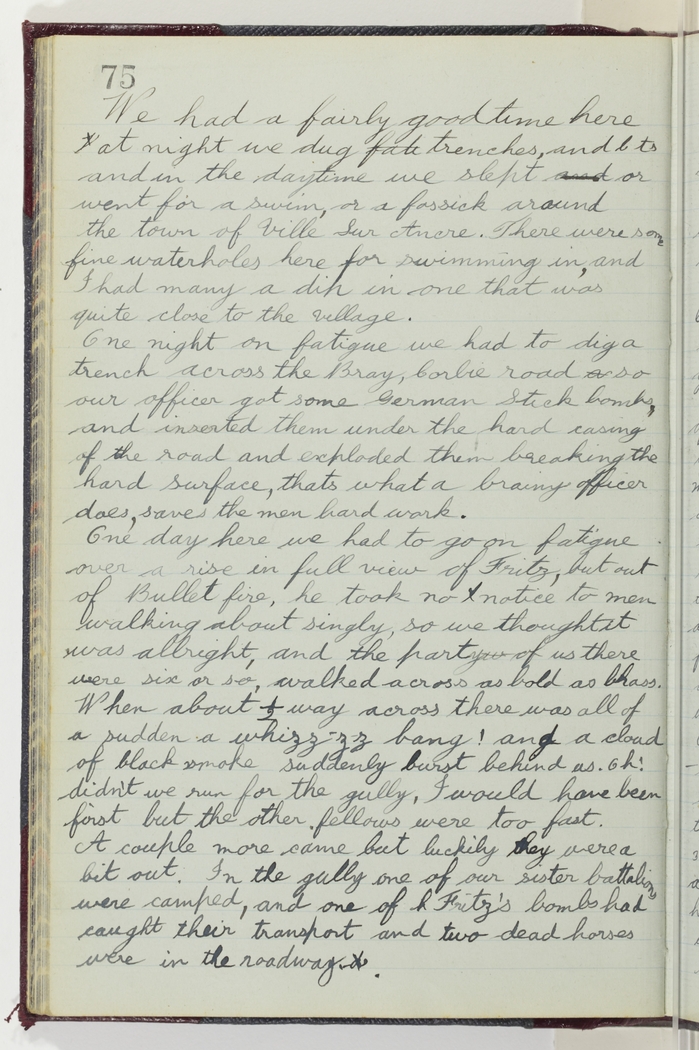 75
We had a fairly good time here
x at night we dug fati trenches, and bts
and in the daytime we slept and or
went for a swim, or a fossick around
the town of Ville Sur Ancre. There were some
fine waterholes here for swimming in, and
I had many a dip in one that was
quite close to the village.
One night on fatigue we had to dig a
trench across the Bray, Corbie road a so
our officer got some German Stick bombs,
and inserted them under the hard casing
of the road and exploded them breaking the
hard surface, thats what a brainy officer
does, saves the men hard work.
One day here we had to go on fatigue
over a rise in full view of Fritz, but out
of Bullet fire, he took no x notice to men
walking about singly, so we thought it
was allright, and the party of us there
were six or so, walked across as bold as brass.
When about ½ way across there was all of
a sudden a whizz-zz bang! and a cloud
of black smoke suddenly burst behind us. Oh!
didn't we run for the gully, I would have been
first but the other fellows were too fast.
A couple more came but luckily they were a
bit out. In the gully one of our sister battalions
were camped, and one of h Fritz's bombs had
caught their transport and two dead horses
were in the roadway.